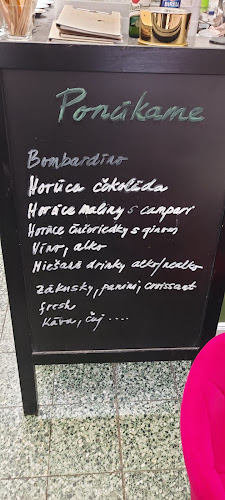 Ponúkame
Bombardino
Horúca čokoláda
Horúce maliny s campari
Horúce čučoriedky s ginom
Víno, alko
Miešané drinky alko/nealko
zákusky, panini, croissant
fresh
Káva, čaj ....